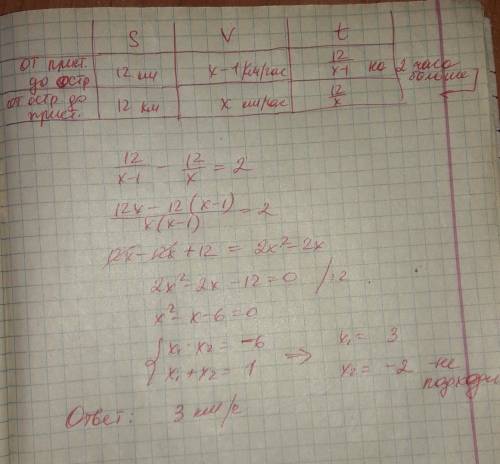 S V t
от прист. до остр 12 км x-1 км/час 12/x-1 на 2 часа больше
от остр до прист. 12 км x км/час 12/x
12/x-1 - 12/x = 2
12x - 12(x-1)/x(x-1) = 2
12x - 12x + 12 = 2x² - 2x
2x² - 2x - 12 = 0 /:2
x² - x - 6 = 0
{ x₁ · x₂ = -6 ⇒ x₁ = 3
x₁ + x₂ = 1 x₂ = -2 - не подходи
Ответ: 3 км/ч